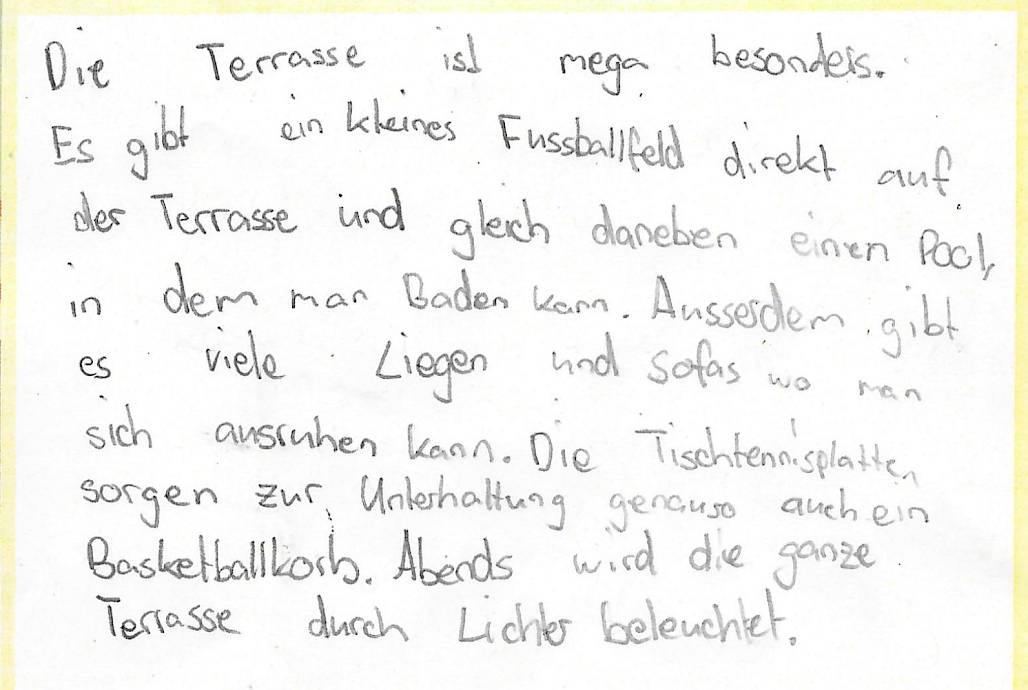 Die Terrasse ist mega besonders.
Es gibt ein kleines Fussballfeld direkt auf
der Terrasse und gleich daneben einen Pool,
in dem man Baden kann. Ausserdem gibt
es viele Liegen und Sofas wo man
sich ausruhen kann. Die Tischtennisplatten
sorgen zur Unterhaltung genauso auch ein
Basketballkorb. Abends wird die ganze
Terrasse durch Lichter beleuchtet.